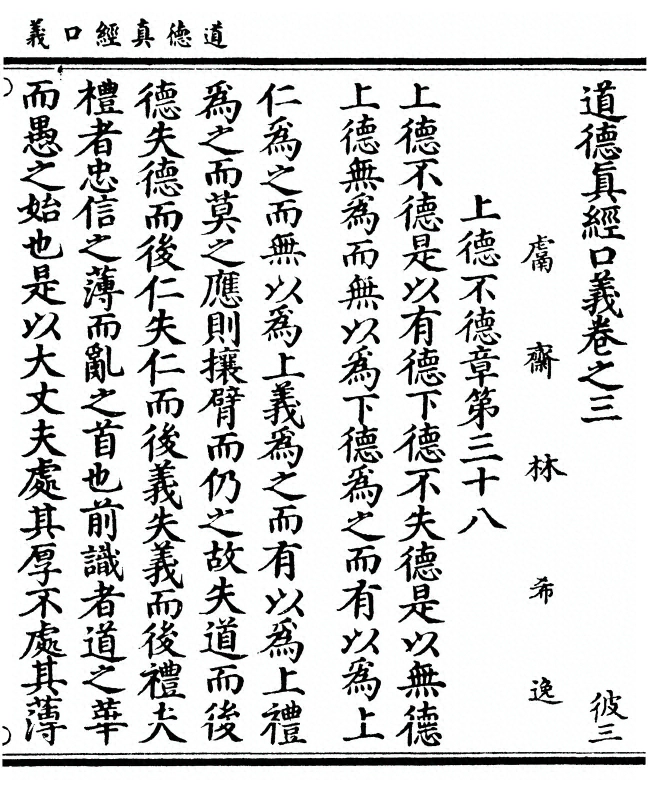 道德真經口義
道德真經口義卷之三 彼三
鬳齋林希逸
上德不德章第三十八
上德不德是以有德下德不失德是以無德
上德無為而無以為下德為之而有以為上
仁為之而無以為上義為之而有以為上禮
為之而莫之應則攘臂而仍之故失道而後
德失德而後仁失仁而後義失義而後禮夫
禮者忠信之薄而亂之首也前識者道之華
而愚之始也是以大丈夫處其厚不處其薄